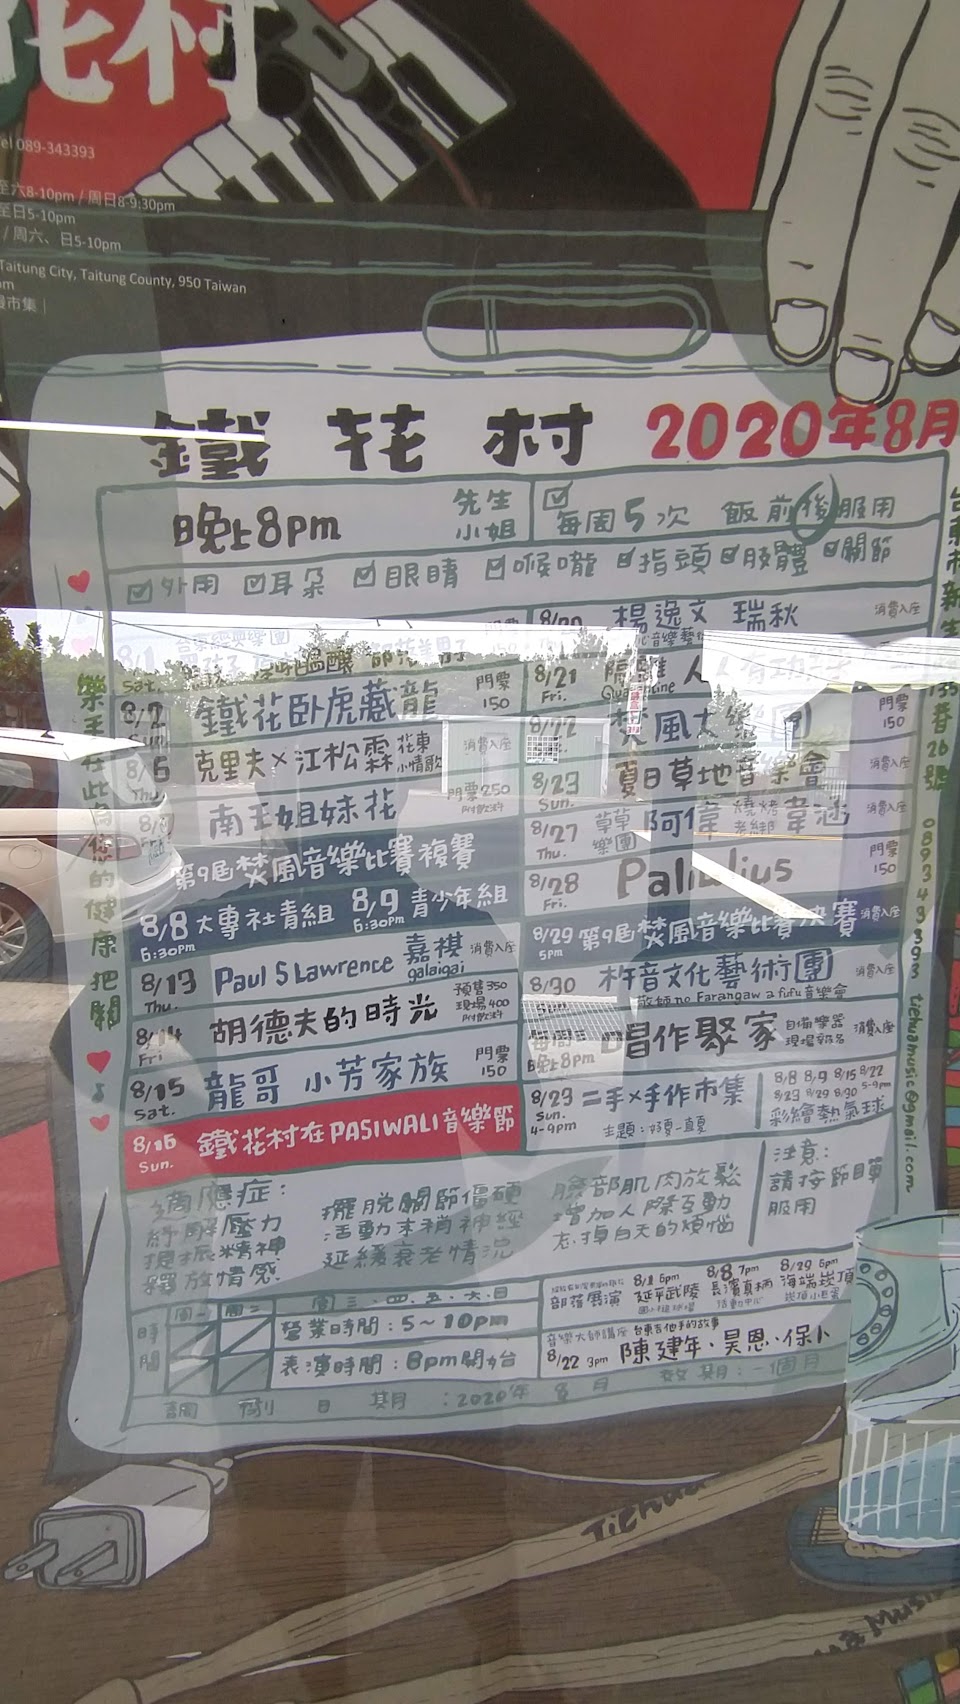 花村
Tel 089-343393
至六8-10pm / 周日8-9:30pm
至日5-10pm
/ 周六、日5-10pm
Taitung City, Taitung County, 950 Taiwan
慢市集|
鐵花村 2020年8月
晚上8pm 先生 小姐 每週5次 飯前後服用
外用 耳朵 眼睛 喉嚨 指頭 肢體 關節
8/1 Sat.
8/2 Sun. 鐵花臥虎藏龍 門票 150
8/6 Thu. 克里夫×江松霖 花東小情歌 消費入座
南王姐妹花 門票250
第9屆焚風音樂比賽複賽
8/8 大專社青組 8/9 青少年組
6:30pm 6:30pm
8/13 Thu. Paul S Lawrence 嘉祺 galaigai 消費入座
8/14 Fri 胡德夫的時光 預售350 現場400
8/15 Sat. 龍哥 小芳家族 門票 150
8/16 Sun. 鐵花村在PASIWALI音樂節
8/20 楊逸文 瑞秋 消費入座
8/21 Fri. 隔離 Quarantine
8/22 焚風大樂團 門票 150
8/23 Sun. 夏日草地音樂會 消費入座
8/27 Thu. 草草樂團 阿偉 消費入座
8/28 Fri. 門票 150
8/29 5pm 第9屆焚風音樂比賽決賽 消費入座
8/30 Sun 杵音文化藝術團 消費入座
Farangaw a fufu音樂會
晚上8pm 唱作聚家 自備樂器 現場報名 消費入座
8/23 Sun. 4-9pm 二手×手作市集
主題:好夏一直夏
8/8 8/9 8/15 8/22
8/23 8/29 8/30 5-9pm
彩繪熱氣球
適應症:
紓解壓力
提振精神
釋放情感
擺脫關節僵硬
活動末梢神經
延緩衰老情況
臉部肌肉放鬆
增加人際互動
忘掉白天的煩惱
注意:
請按節目單
服用
時間 周一 周二 周三.四.五.六.日
營業時間:5~10pm
表演時間:8pm開始
部落展演 8/1 6pm 延平武陵 8/8 7pm 長濱真柄 活動中心 8/29 6pm 海端崁頂
音樂大師講座 台東吉他手的故事
8/22 3pm 陳建年、昊恩、保卜
調劑日期:2020年8月 效期:一個月
樂手在此為您的健康把關
台東市新生路135巷26號 089343393 tiehuamusic@gmail.com
Tiehua
Music